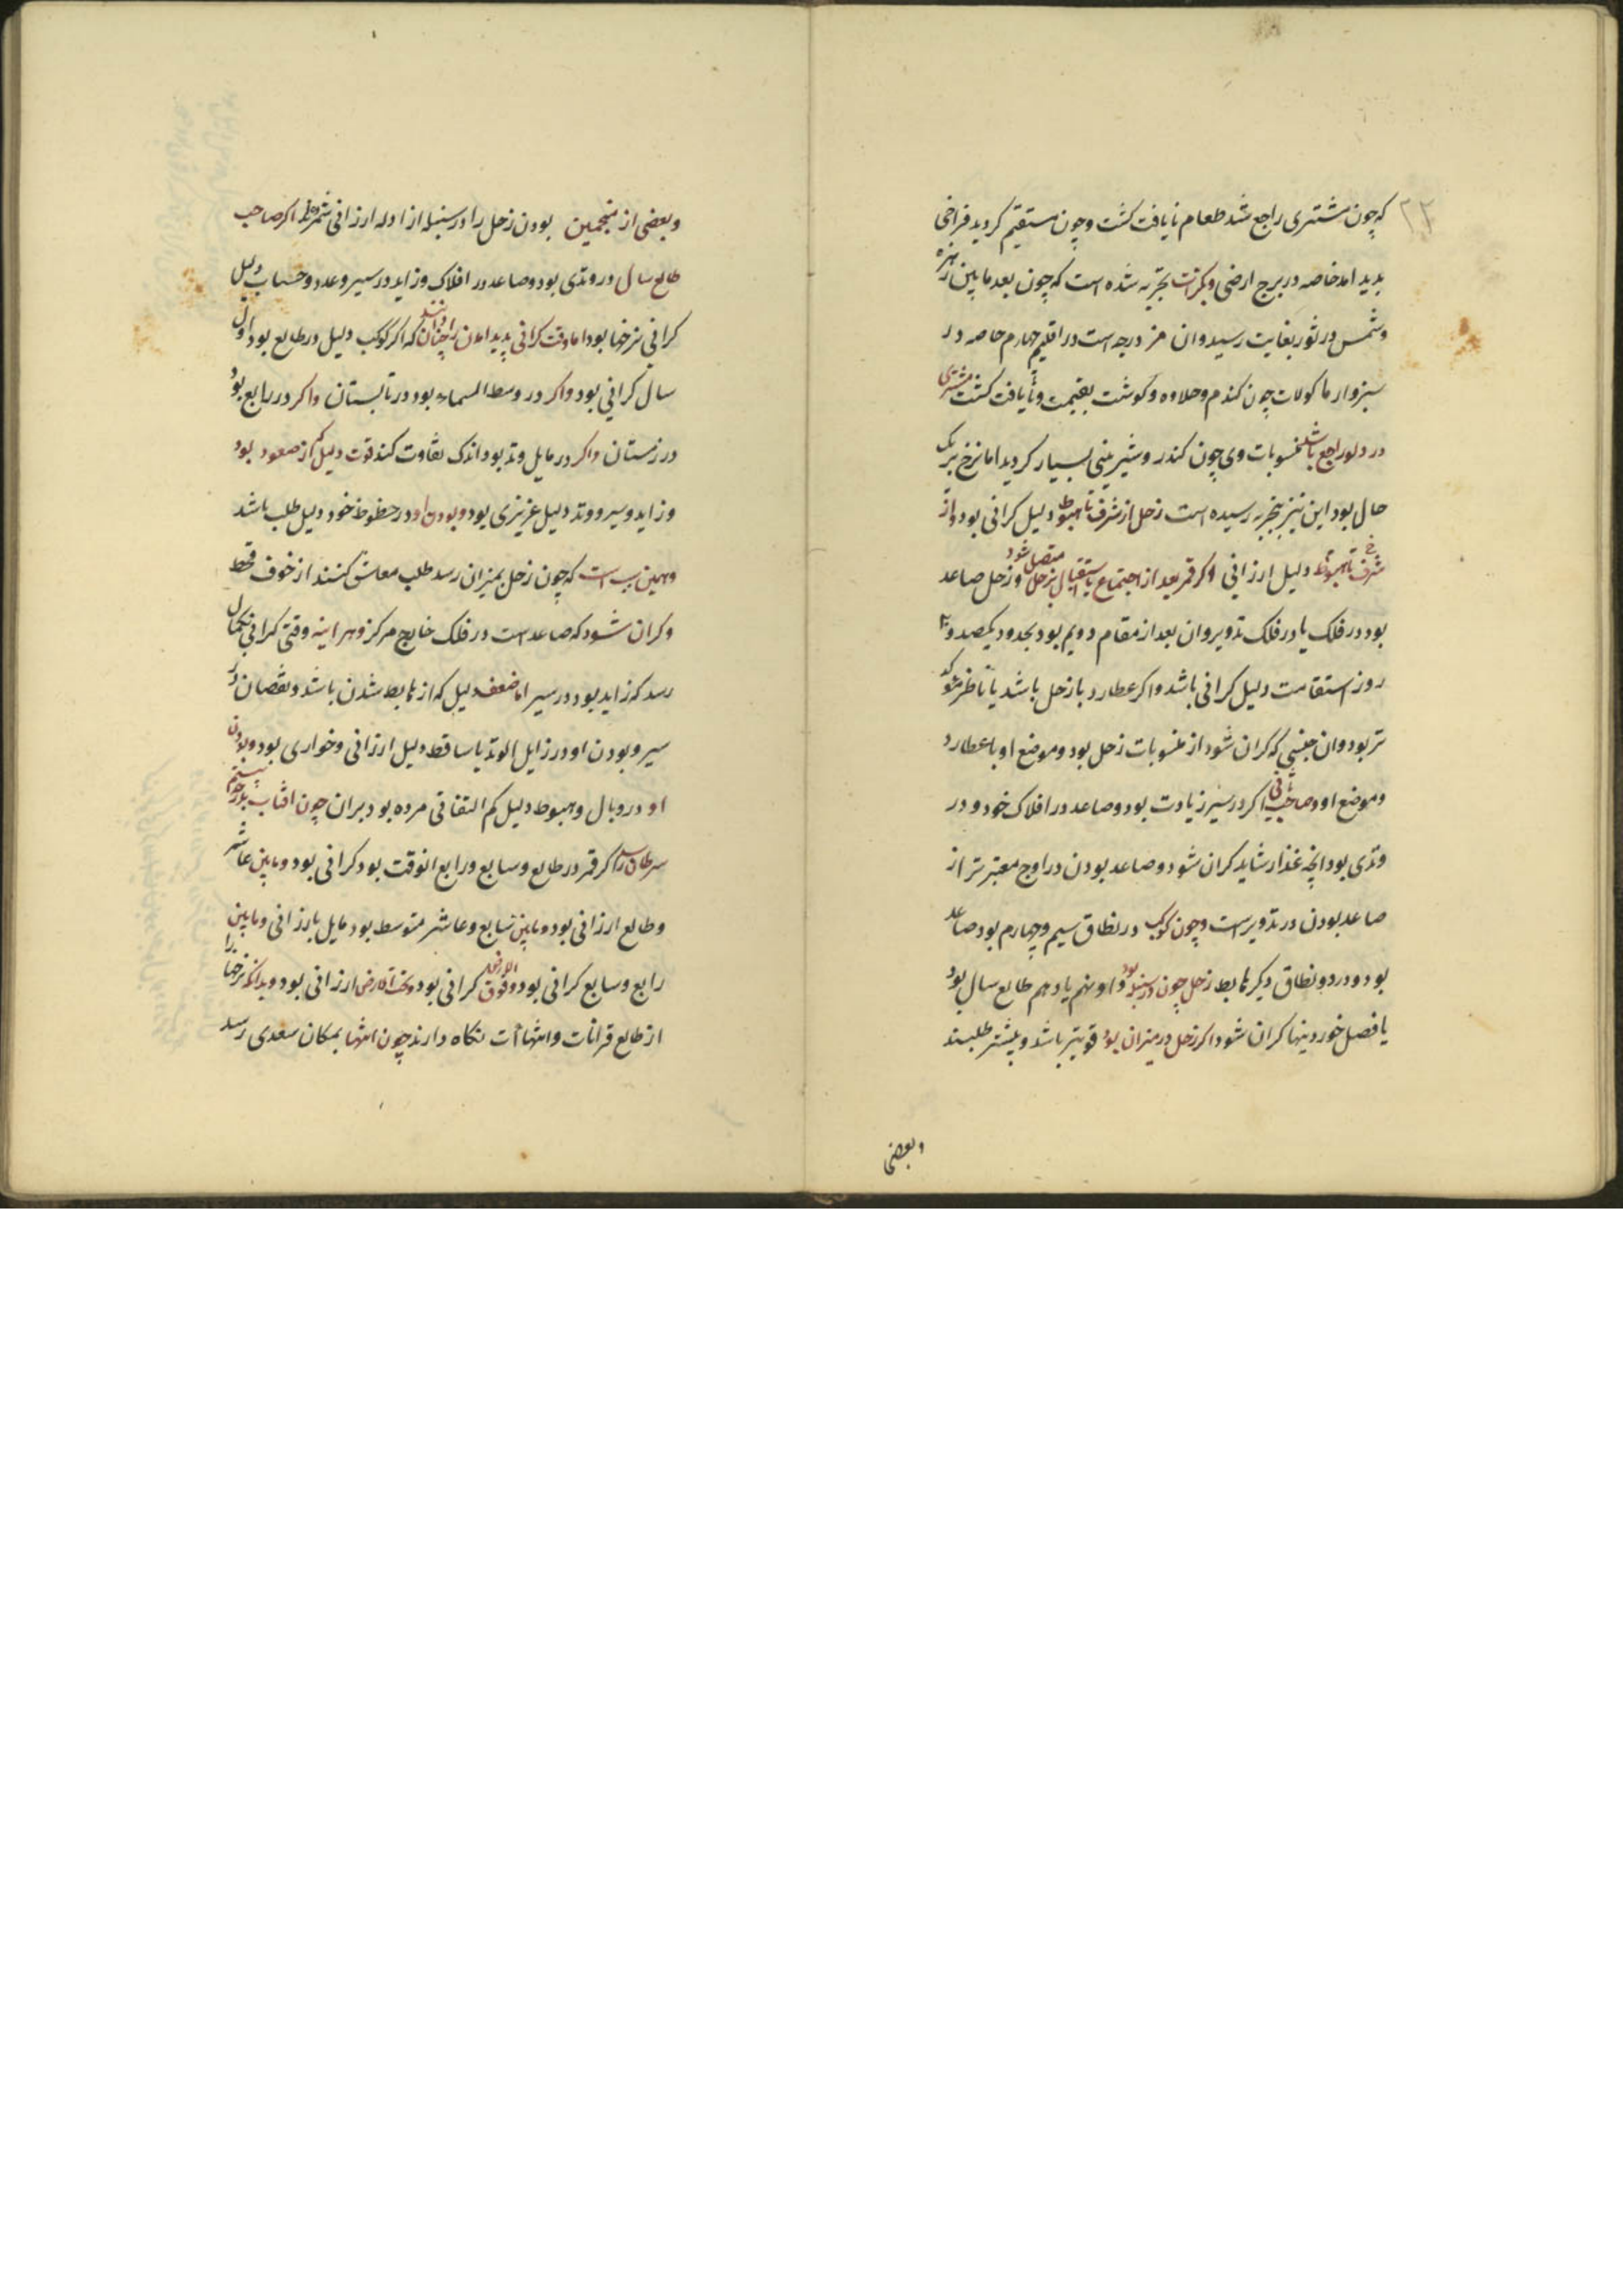 ۲۳
که چون مشتری راجع شد طعام نایافت کشت و چون مستقیم کردید فراخی
بدید امد خاصه در برج ارضی و بکرات تجربه شده است که چون بعد ما بین زهره
و شمس در ثور بغایت رسید و ان مز درجه است در اقلیم چهارم خاصه در
سبزوار ماکولات چون کندم و حلاوه و کوشت بقیمت و نایافت کشت مشتری
در دلو راجع باشد منسوبات وی چون کندر و شیرینی بسیار کردید اما نرخ بر یک
حال بود این نیز بتجربه رسیده است زحل از شرف تا هبوط دلیل کرانی بود و از
شرف تا هبوط دلیل ارزانی و اکر قمر بعد از اجتماع یا استقبال بزحل متصل شود و زحل صاعد
بود در فلک یا در فلک تدویر و ان بعد از مقام دویم بود بحدود یکصد و
روز استقامت دلیل کرانی باشد و اکر عطارد با زحل باشد یا ناظر
تر بود و ان جنسی که کران شود از منسوبات زحل بود و موضع او با عطارد
و موضع او و صاحب ثانی اکر در سیر زیادت بود و صاعد در افلاک خود و در
وتدی بود انچه غذا را شاید کران شود و صاعد بودن در اوج معتبر تر از
صاعد بودن در تدویر است و چون کوکب در نطاق سیم و چهارم بود صاعد
بود و در دو نطاق دیکر هابط زحل چون در سنبله بود و او نهم یا دهم طالع سال بود
یا فصل خوردنیها کران شود اکر زحل در میزان بود قویتر باشد و بیشتر طلبند
و بعضی
و بعضی از منجمین بودن زحل را در سنبله از ادله ارزانی شمرده‌اند اکر صاحب
طالع سال در وتدی بود و صاعد در افلاک و زاید در سیر و عدد و حساب دلیل
کرانی نرخها بود اما وقت کرانی پدید امدن را چنان دانند که اکر کوکب دلیل در طالع بود اول
سال کرانی بود و اکر در وسط السماء بود در تابستان و اکر در رابع بود
در زمستان و اکر در مایل وتد بود اندک تفاوت کند قوت دلیل که از صعود بود
و زاید و سیر و وتد دلیل عزیزی بود و بودن او در حظوظ خود دلیل طلب باشد
و همین سبب است که چون زحل بمیزان رسد طلب معاش کنند از خوف قحط
و کران شود که صاعد است در فلک خارج مرکز و هر اینه وقتی کرانی بکمال
رسد که زاید بود در سیر اما ضعف دلیل که از هابط شدن باشد و نقصان در
سیر و بودن او در زایل الوتد یا ساقط دلیل ارزانی و خواری بود و بودن
او در وبال و هبوط دلیل کم التفاتی مردم بود بران چون افتاب به بیستم درجه
سرطان رسد اکر قمر در طالع و سابع و رابع انوقت بود کرانی بود و مابین عاشر
و طالع ارزانی بود و مابین سابع و عاشر متوسط بود مایل بارزانی و مابین
رابع و سابع کرانی بود و فوق الارض کرانی بود و تحت الارض ارزانی بود و بدانکه نرخها را
از طالع قرانات و انتهاأت نکاه دارند چون انتها بمکان سعدی رسد